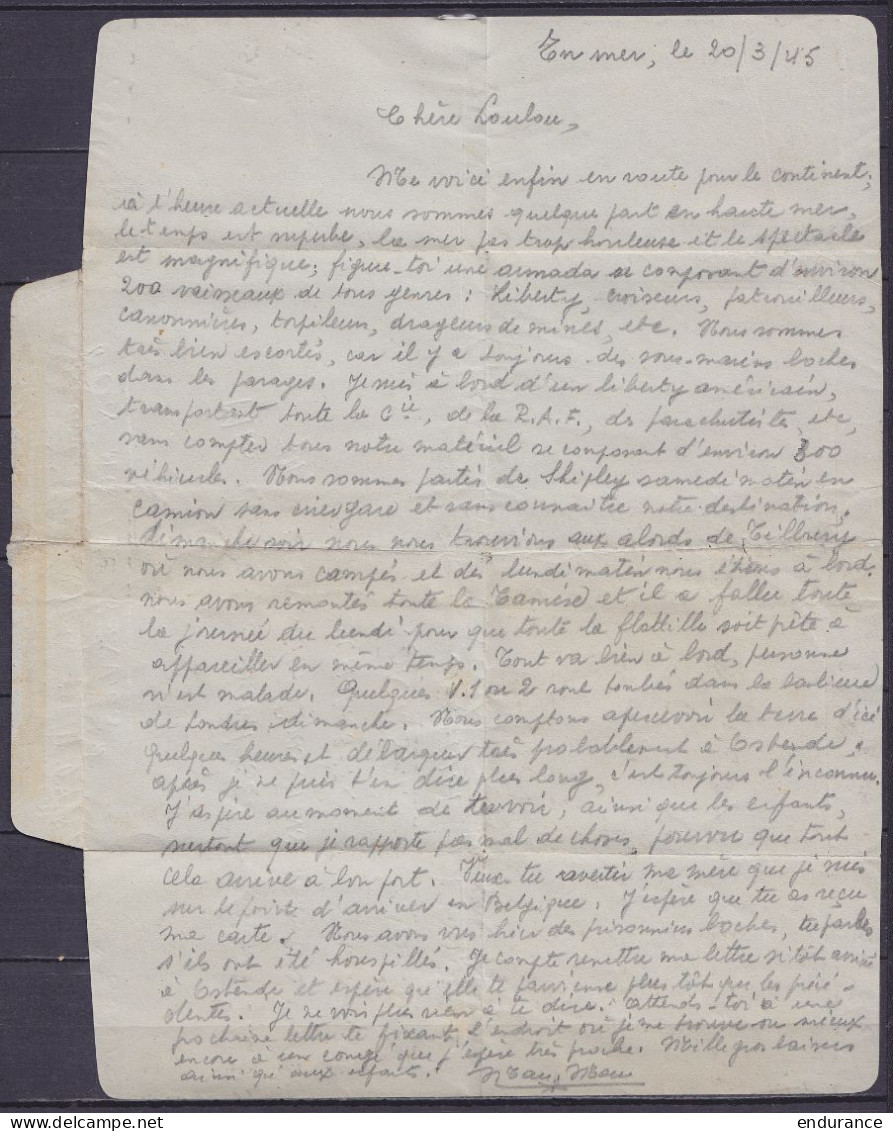 En mer, le 20/3/45
Chère Loulou,
Me voici enfin en route pour le continent,
à l'heure actuelle nous sommes quelque part en haute mer,
le temps est superbe, la mer pas trop houleuse et le spectacle
est magnifique; figure-toi une armada se composant d'environ
200 vaisseaux de tous genres: Liberty, croiseurs, patrouilleurs,
canonnières, torpilleurs, dragueurs de mines, etc. Nous sommes
très bien escortés, car il y a toujours des sous-marins boches
dans les parages. Je suis à bord d'un liberty américain,
transportant toute la Cie, de la R.A.F., des parachutistes, etc,
sans compter tous notre matériel se composant d'environ 300
véhicules. Nous sommes partis de Shipley samedi matin en
camion sans crier gare et sans connaitre notre destination.
Dimanche soir nous nous trouvions aux abords de Tillbury
où nous avons campés et dès lundi matin nous étions à bord.
nous avons remontés toute la Tamise et il a fallu toute
la journée du lundi pour que toute la flottille soit prête à
appareiller en même temps. Tout va bien à bord, personne
n'est malade. Quelques V.1 ou 2 sont tombés dans la banlieue
de Londres dimanche. Nous comptons apercevoir la terre d'ici
quelques heures et débarquer très probablement à Ostende,
après je ne puis t'en dire plus long, c'est toujours l'inconnu.
J'aspire au moment de te voir, ainsi que les enfants,
surtout que je rapporte pas mal de choses, pourvu que tout
cela arrive à bon port. Veux-tu avertir ma mère que je suis
sur le point d'arriver en Belgique. J'espère que tu as reçu
ma carte. Nous avons vus hier des prisonniers boches, tu parles
s'ils ont été houspillés. Je compte remettre ma lettre sitôt arrivé
à Ostende et espère qu'elle te parvienne plus tôt que les précé-
dentes. Je ne vois plus rien à te dire. attends-toi à une
prochaine lettre te fixant l'endroit où je me trouve ou mieux
encore à un congé que j'espère très proche. Mille gros baisers
ainsi qu'aux enfants.
endurance